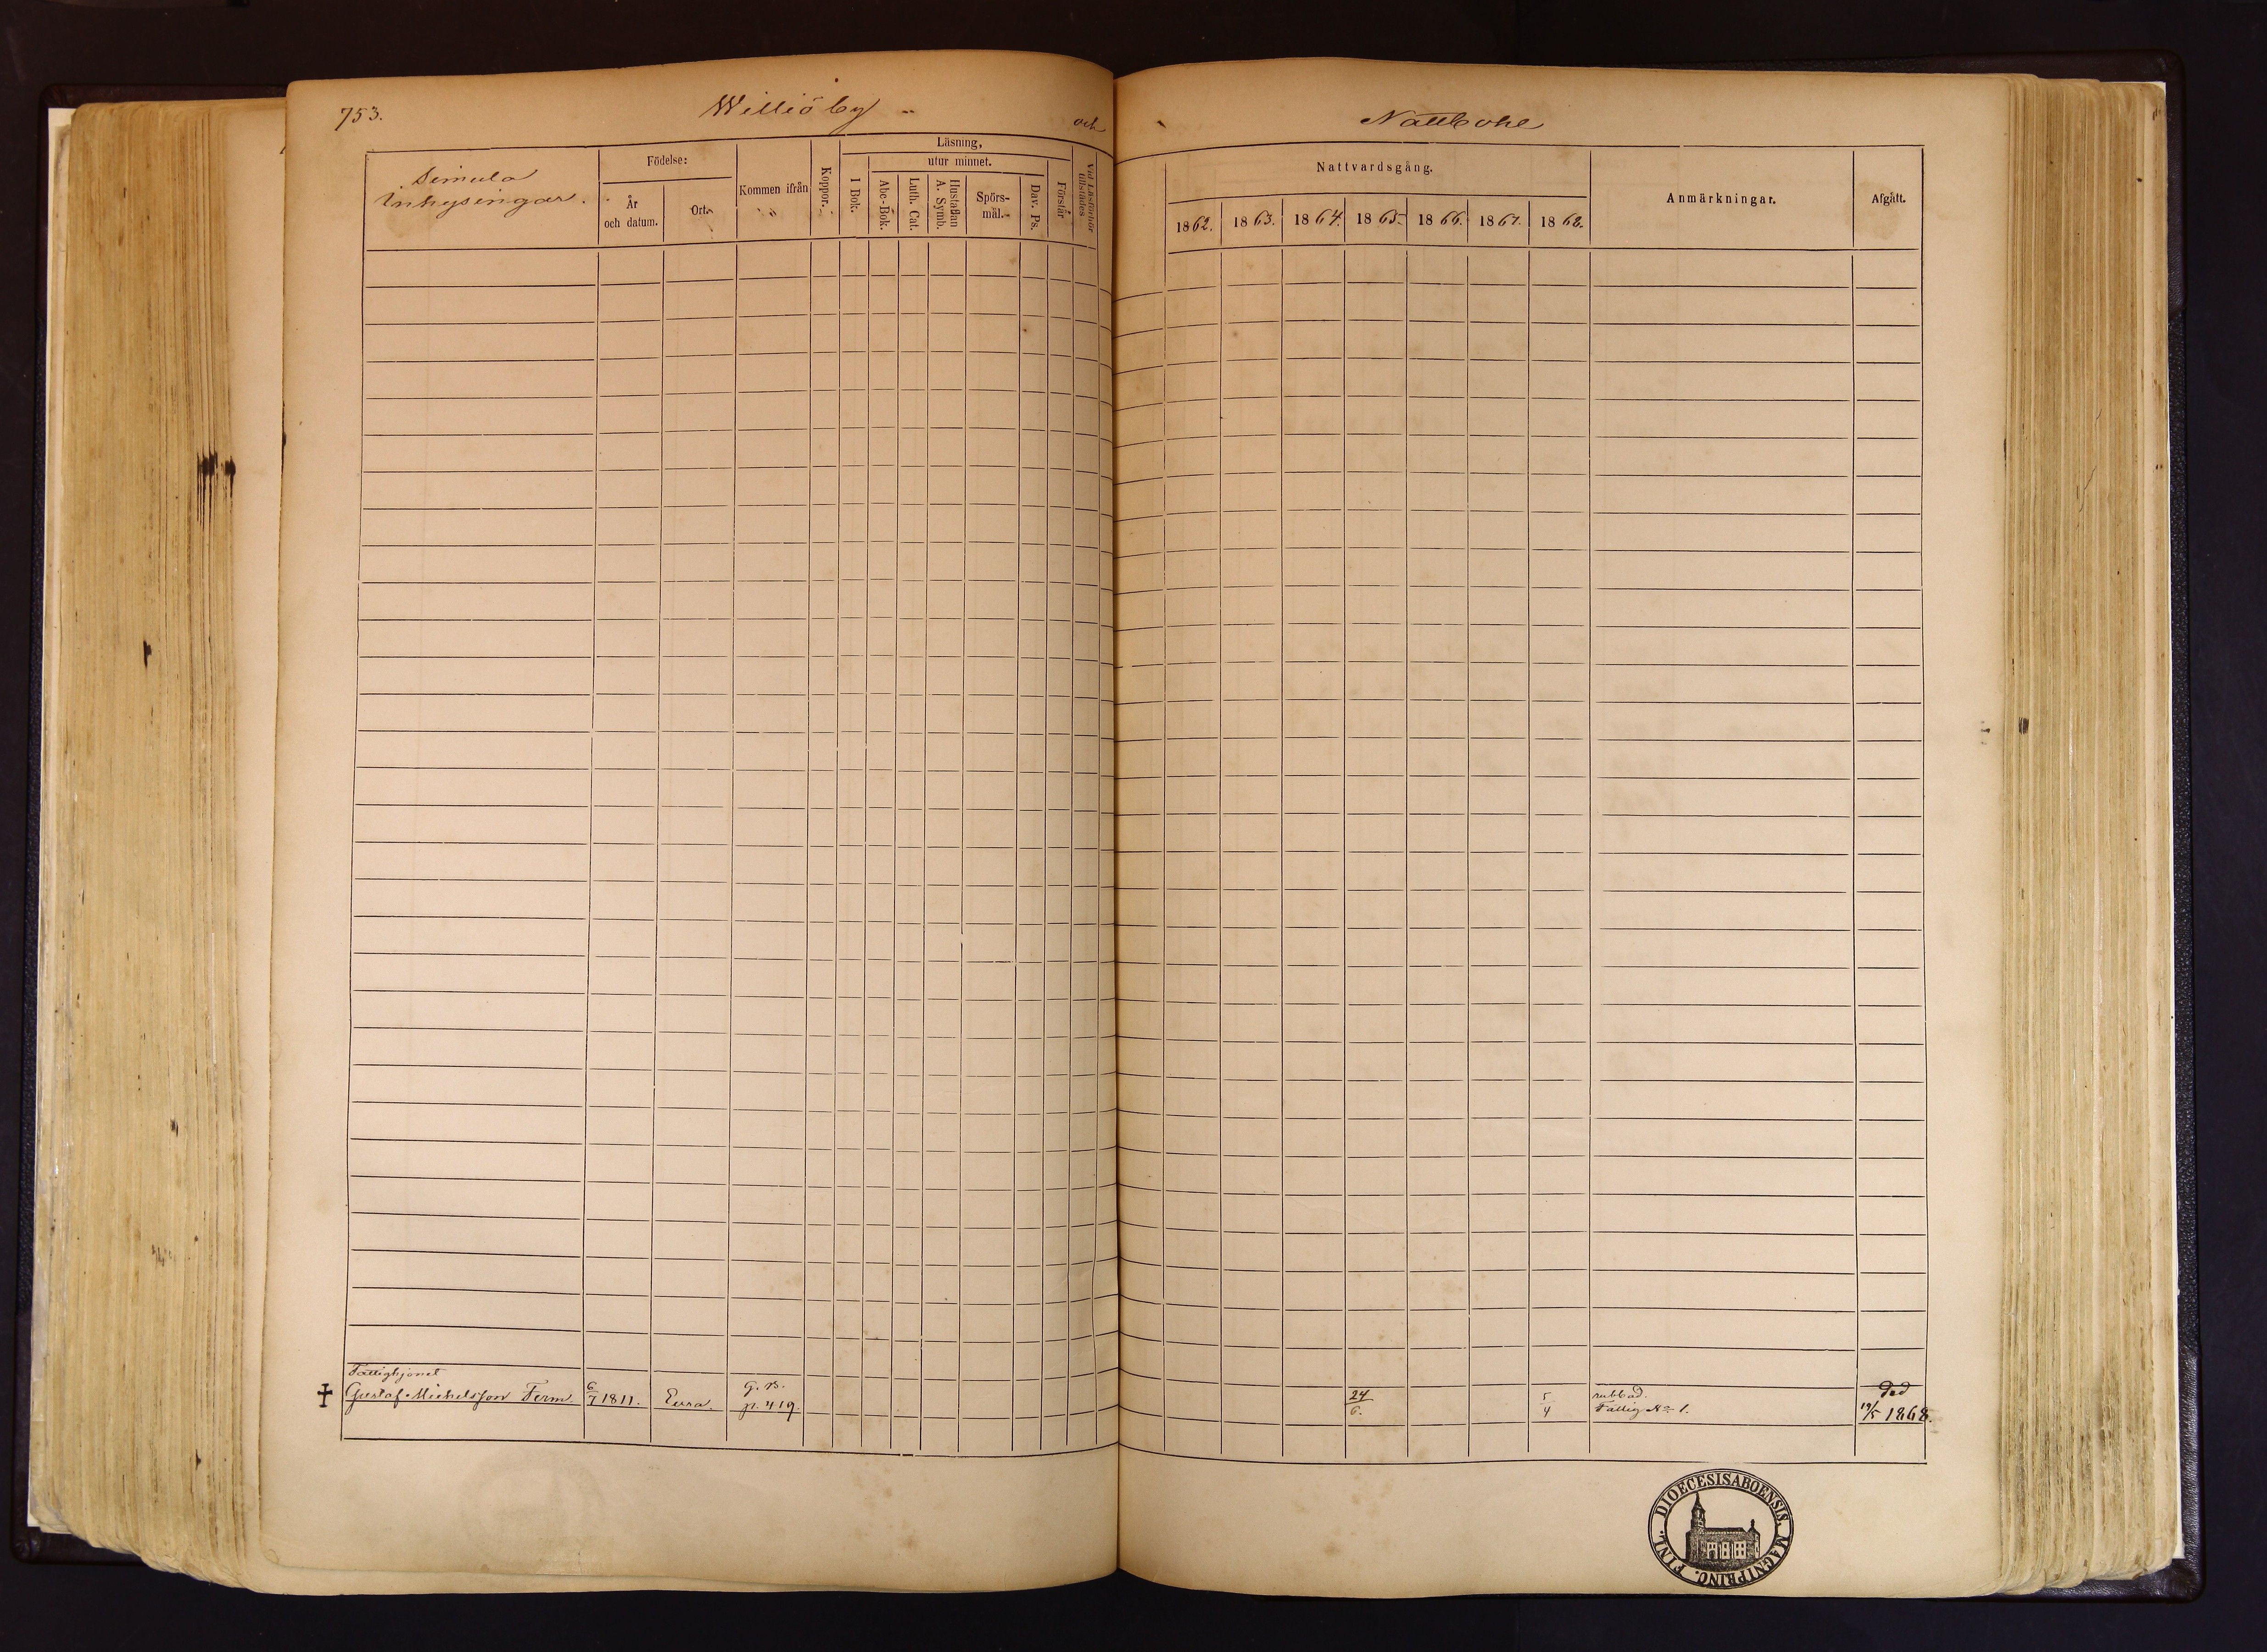 753.
Williöby
och
Nattbohl
Simula
Inhysingar.
Födelse:
År
och datum.
Ort.
Kommen ifrån
Koppor.
Läsning,
utur minnet.
I Bok.
Abc-Bok.
Luth. Cat.
Hustaflan
A. Symb.
Spörs-
mål.
Dav. Ps.
Förstår
Vid Läsförhör
tillstädes
Nattvardsgång.
1862. 1863. 1864. 1865. 1866. 1867. 1868.
Anmärkningar.
Afgått.
Fattighjonet
Gustaf Michelsson Ferm 6/7 1811. Eura. G. B. p. 419. 24/6. 5/4
Fattig No 1.
död
19/5 1868.
DIOECESIS ABOENSIS. MAGNI PRINC. FINL.